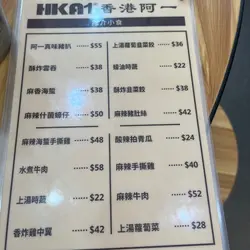 HKA1 香港阿一
小食
阿一真味豬扒 ······ $55
酥炸雲吞 ······ $38
麻香海蜇 ······ $38
麻辣什菌蟶仔 ······ $50
麻辣海蜇手撕雞 ······ $48
水煮牛肉 ······ $58
上湯時蔬 ······ $32
香炸雞中翼 ······ $42
上湯蘿蔔韮菜餃 ······ $36
蠔油時蔬 ······ $22
酥炸韮菜餃 ······ $38
麻辣豬肚絲 ······ $42
酸辣拍青瓜 ······ $24
麻辣手撕雞 ······ $40
麻辣牛肉 ······ $52
上湯蘿蔔菜 ······ $28